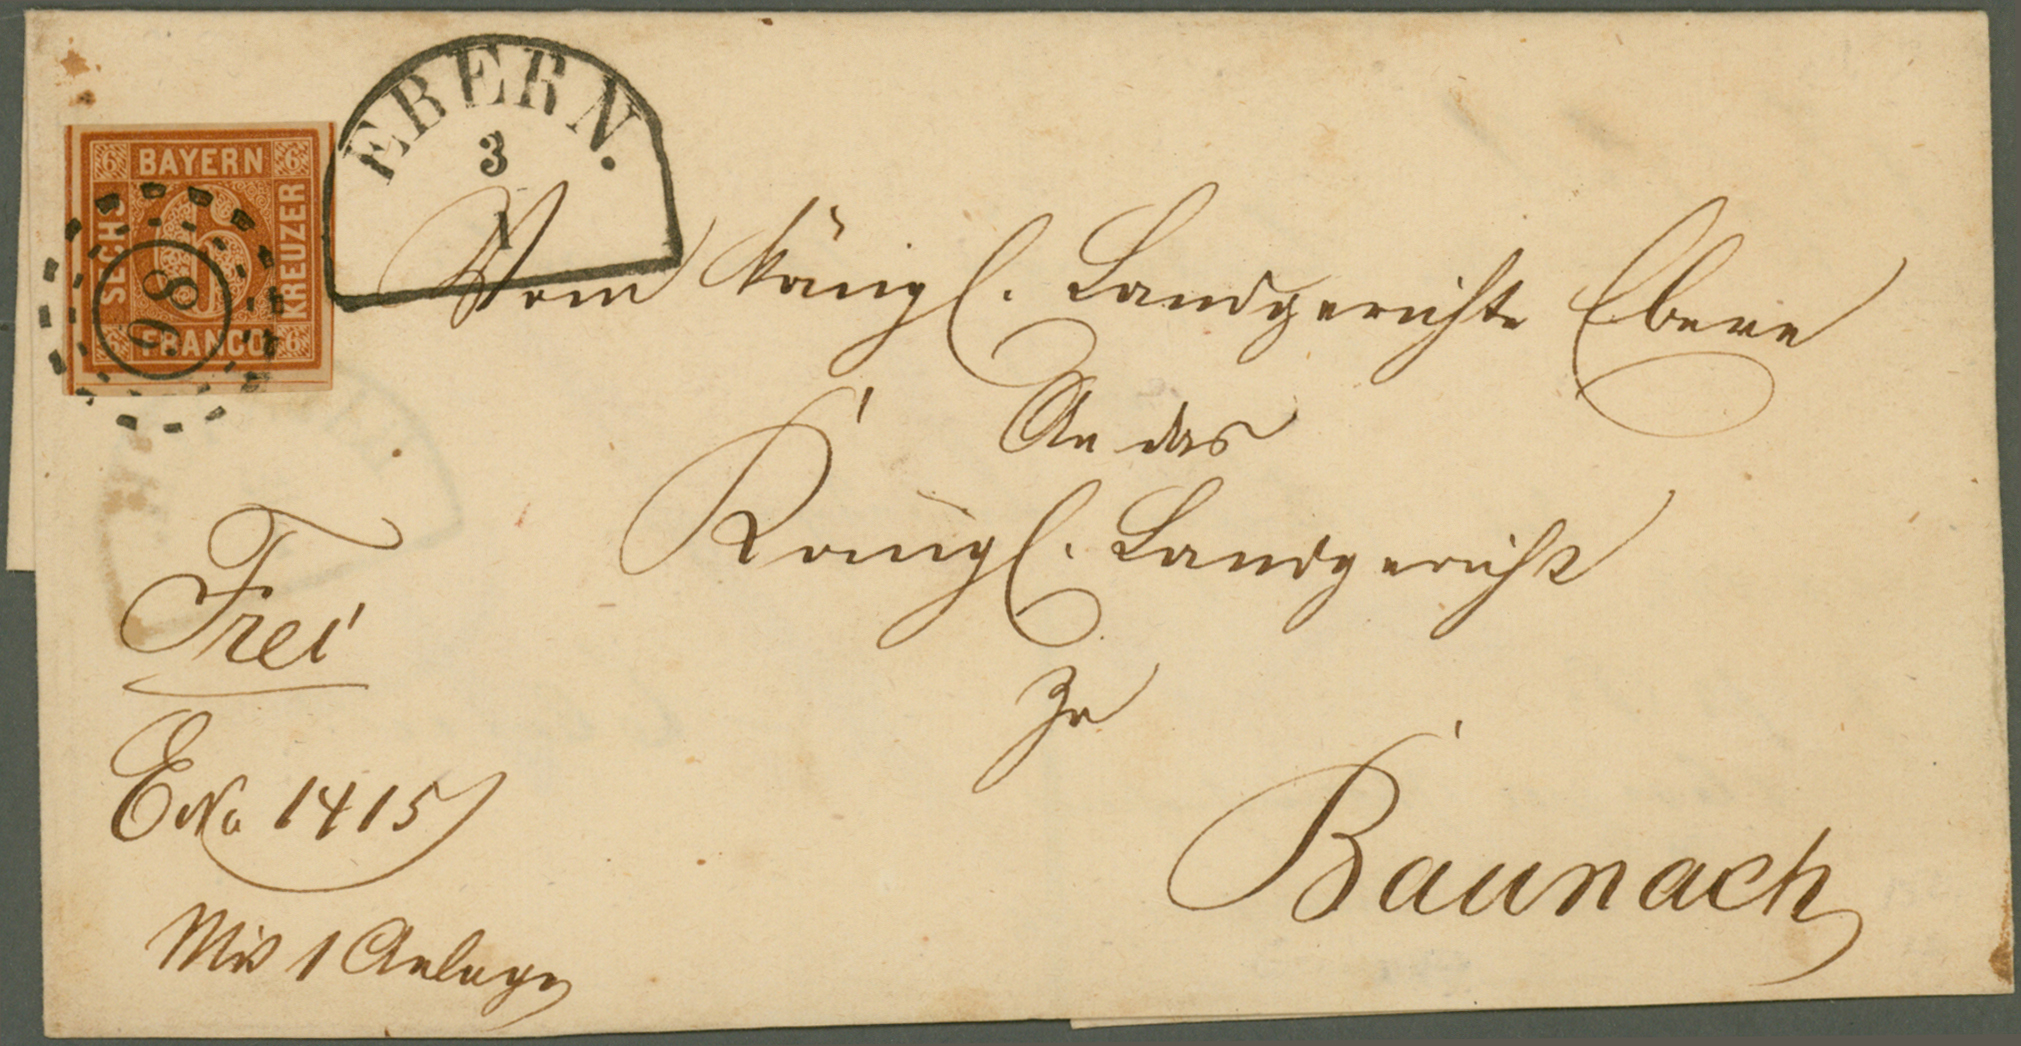 6 BAYERN 6
SECHS
6
KREUZER
6 FRANCO 6
98
EBERN.
3
1
Vom königl. Landgerichte Ebern
An das
Königl. Landgericht
Zu
Baunach
Frei
E No. 1415
Mit 1 Anlage